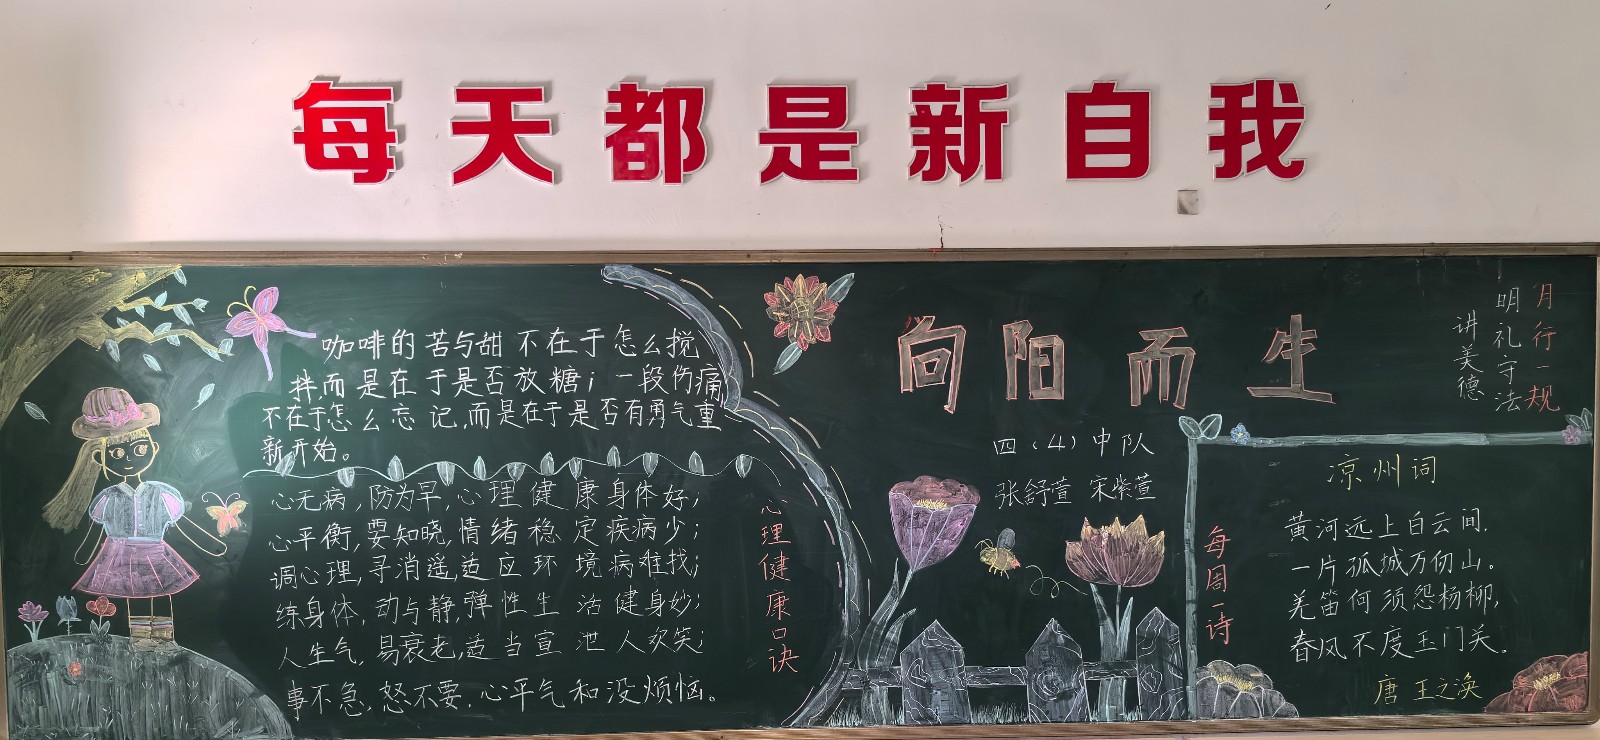 每天都是新自我
咖啡的苦与甜不在于怎么搅
拌而是在于是否放糖;一段伤痛
不在于怎么忘记,而是在于是否有勇气重
新开始。
心无病,防为早,心理健康身体好;
心平衡,要知晓,情绪稳定疾病少;
调心理,寻消遥,适应环境病难找;
练身体,动与静,弹性生活健身妙;
人生气,易衰老,适当宣泄人欢笑;
事不急,怒不要,心平气和没烦恼。
心理健康口诀
向阳而生
四(4)中队
张舒萱 宋紫萱
月行一规
明礼守法
讲美德
每周一诗
凉州词
黄河远上白云间,
一片孤城万仞山。
羌笛何须怨杨柳,
春风不度玉门关。
唐 王之涣